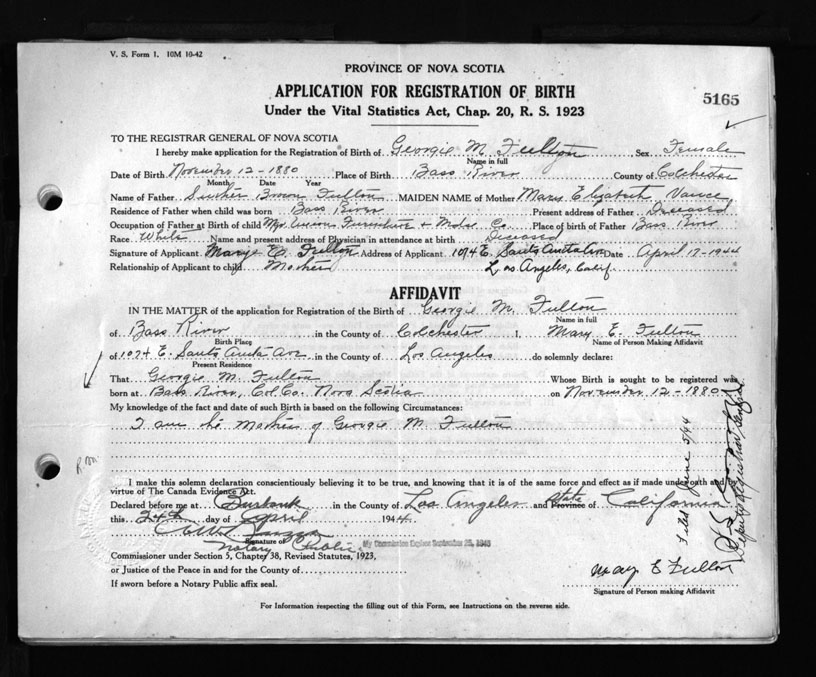 V. S. Form 1. 10M 10-42
PROVINCE OF NOVA SCOTIA
APPLICATION FOR REGISTRATION OF BIRTH
5165
Under the Vital Statistics Act, Chap. 20, R. S. 1923
TO THE REGISTRAR GENERAL OF NOVA SCOTIA
I hereby make application for the Registration of Birth of Georgie M. Fulton Sex Female
Name in full
Date of Birth November 12-1880 Place of Birth Bass River County of Colchester
Month Date Year
Name of Father Brown Fulton MAIDEN NAME of Mother Mary Elizabeth Vance
Residence of Father when child was born Bass River Present address of Father Deceased
Occupation of Father at Birth of child Furniture + Mdse Co. Place of birth of Father Bass River
Race White Name and present address of Physician in attendance at birth Deceased
Signature of Applicant Mary E. Fulton Address of Applicant 1074 E. Santa Anita Ave Date April 17-1944
Relationship of Applicant to child Mother Los Angeles, Calif
AFFIDAVIT
IN THE MATTER of the application for Registration of the Birth of Georgie M. Fulton
Name in full
of Bass River in the County of Colchester I, Mary E. Fulton
Birth Place Name of Person Making Affidavit
of 1074 E. Santa Anita Ave. in the County of Los Angeles do solemnly declare:
Present Residence
That Georgie M. Fulton Whose Birth is sought to be registered was
born at Bass River, Col. Co. Nova Scotia on November 12-1880
My knowledge of the fact and date of such Birth is based on the following Circumstances:
I am the Mother of Georgie M. Fulton
I make this solemn declaration conscientiously believing it to be true, and knowing that it is of the same force and effect as if made under oath and
virtue of The Canada Evidence Act.
Declared before me at Burbank in the County of Los Angeles and State Province of California
this 24th day of April 1944
Signature of
Notary Public
My Commission Expires September 25, 1945
Commissioner under Section 5, Chapter 38, Revised Statutes, 1923,
or Justice of the Peace in and for the County of
If sworn before a Notary Public affix seal.
Mary E Fulton
Signature of Person making Affidavit
For Information respecting the filling out of this Form, see Instructions on the reverse side.
Filed June 5/44
Deputy Registrar General